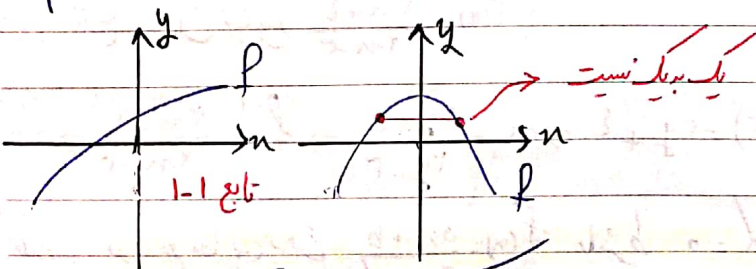 y
f
x
تابع ۱-۱
y
یک به یک نیست
x
f